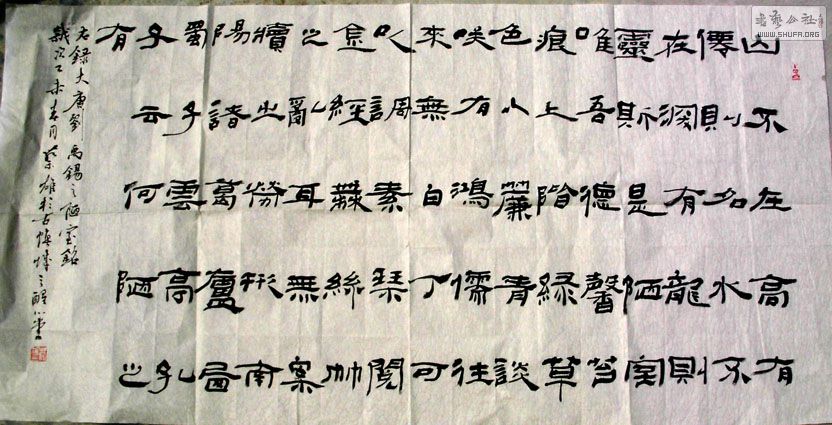 山不在高有
僊則名水不
在深有龍則
靈斯是陋室
唯吾德馨苔
痕上階綠草
色入簾青談
咲有鴻儒往
來無白丁可
以調素琴閱
金經無絲竹
之亂耳無案
牘之勞形南
陽諸葛廬西
蜀子雲亭孔
子云何陋之
有
右錄大唐劉禹錫之陋室銘
歲次乙未春月 雄於古慎城之醒心堂
WWW.SHUFA.ORG